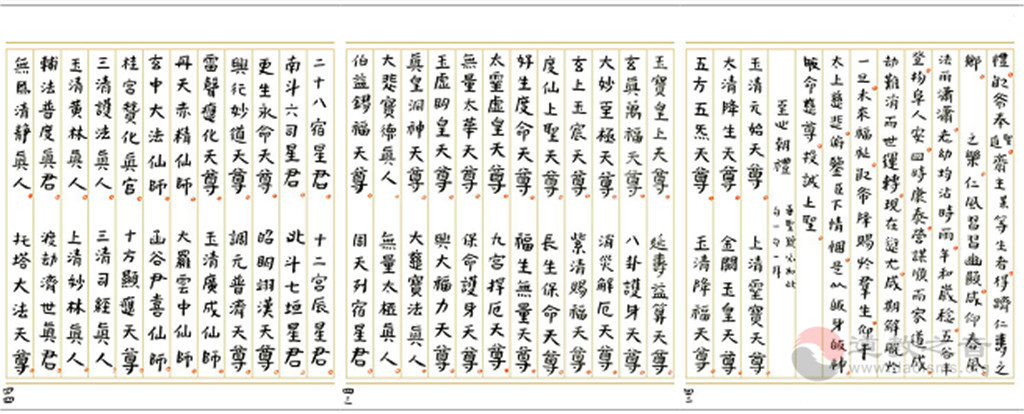 齋主某等生者得躋仁壽之
鄉 之樂仁風習習幽顯咸仰春風
法雨瀟瀟老幼均沾時雨年和歲稔五谷豐
登物阜人安四時康泰營謀順而家道成
劫難消而世運轉現在愆尤咸期解脫於
一旦未來福祉敢祈降賜於羣生仰干
太上慈悲俯鑒臣下情悃是以皈身皈神
皈命慈尊投誠上聖
至心朝禮
玉清元始天尊 上清靈寶天尊
太清降生天尊 金闕玉皇天尊
五方五炁天尊 玉清降福天尊
玉寶皇上天尊 延壽益算天尊
玄眞萬福天尊 八卦護身天尊
大妙至極天尊 消災解厄天尊
玄上玉宸天尊 紫清賜福天尊
度仙上聖天尊 長生保命天尊
好生度命天尊 福生無量天尊
太靈虛皇天尊 九宮捍厄天尊
無量太華天尊 保命護身天尊
玉虛明皇天尊 興大福力天尊
眞皇洞神天尊 大慈寶法眞人
大悲寶德眞人 無量太極眞人
伯益錫福天尊 周天列宿星君
二十八宿星君 十二宮辰星君
南斗六司星君 北斗七垣星君
更生永命天尊 昭明翊漢天尊
興行妙道天尊 調元普濟天尊
雷聲應化天尊 玉清廣成仙師
丹天赤精仙師 大羅雲中仙師
玄中大法仙師 函谷尹喜仙師
桂宮贊化眞官 十方顯應天尊
三清護法眞人 三清司經眞人
玉清黃林眞人 上清妙林眞人
輔法普度眞君 渡劫濟世眞君
無爲清靜眞人 托塔大法天尊
道教之音
www.daoisms.org